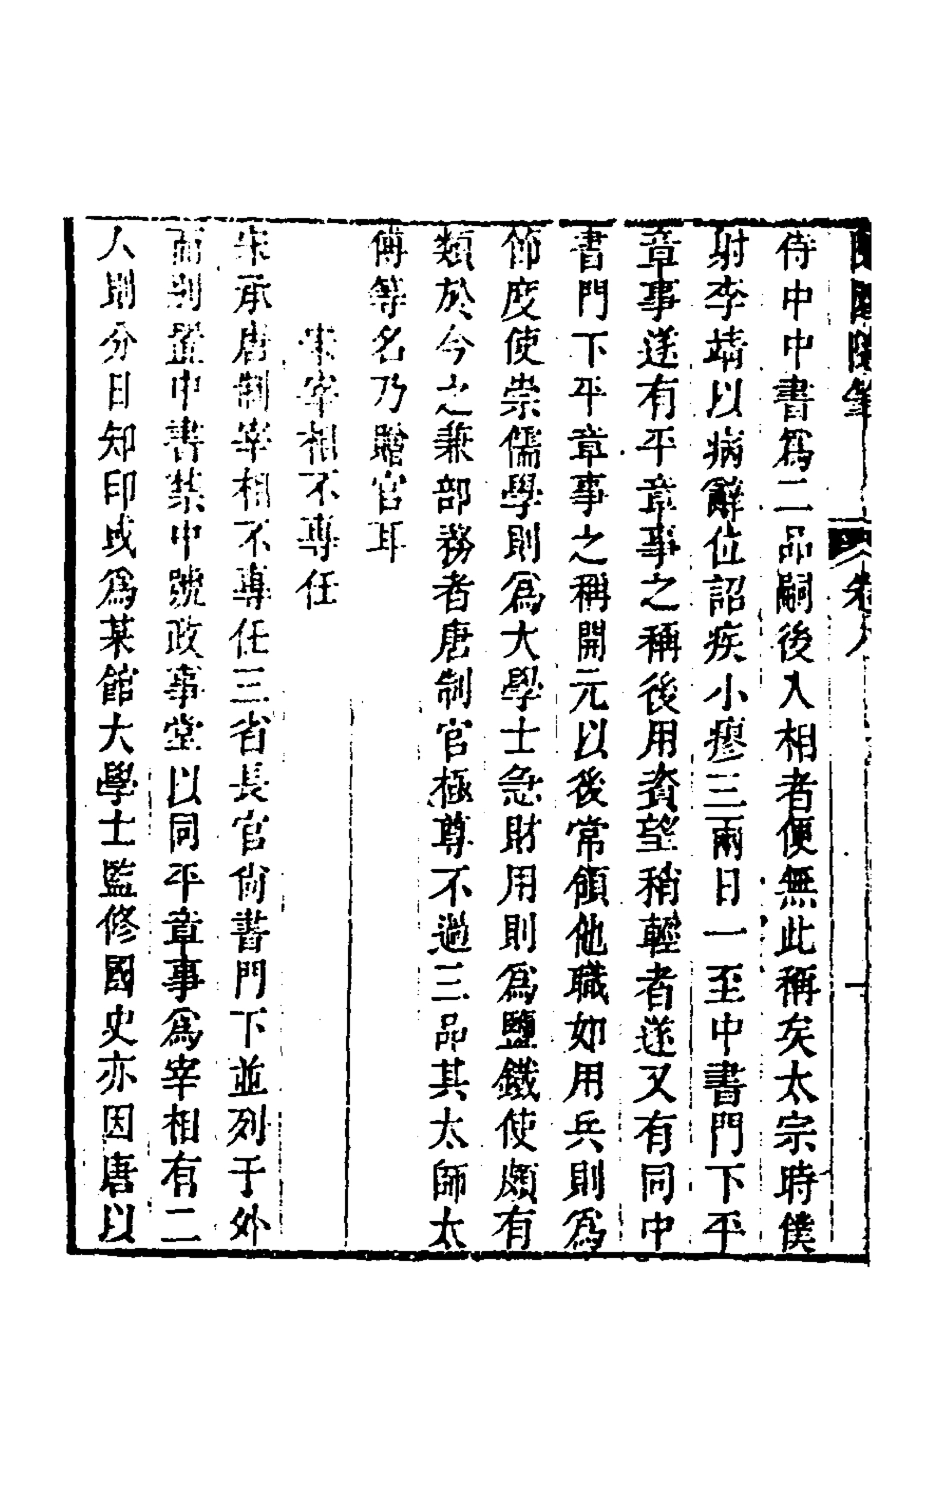 侍中中書為二品嗣後入相者便無此稱矣太宗時僕
射李靖以病辭位詔疾小瘳三兩日一至中書門下平
章事遂有平章事之稱後用資望稍輕者遂又有同中
書門下平章事之稱開元以後常領他職如用兵則為
節度使崇儒學則為大學士急財用則為鹽鐵使頗有
類於今之兼部務者唐制官極尊不過三品其太師太
傅等名乃贈官耳
宋宰相不專任
宋承唐制宰相不專任三省長官尙書門下並列于外
而別置中書禁中號政事堂以同平章事為宰相有二
人則分日知印或為某館大學士監修國史亦因唐以